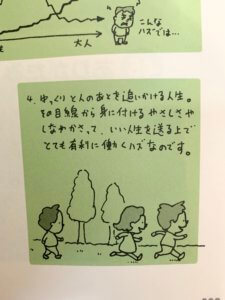 大人
こんな
ハズでは…
4. ゆっくりと人のあとを追いかける人生。
その目線から身に付けるやさしさや
しなやかさって、いい人生を送る上で
とても有利に働くハズなのです。